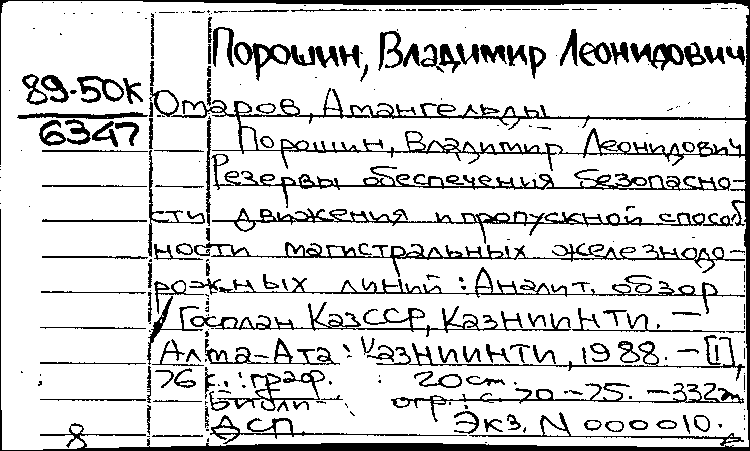 Порошин, Владимир Леонидович
89-50К
6347
Омаров, Амангельды,
Порошин, Владимир Леонидович
Резервы обеспечения безопасно-
сти движения и пропускной способ
ности магистральных железнодо-
рожных линий : Аналит. обзор
/ Госплан КазССР, КазНИИНТИ. —
Алма-Ата : КазНИИНТИ, 1988. — [1],
76 с. : граф. : 20 см.
Библи- огр.: с. 70-75. — 332
ДСП. Экз. N 000010.
8